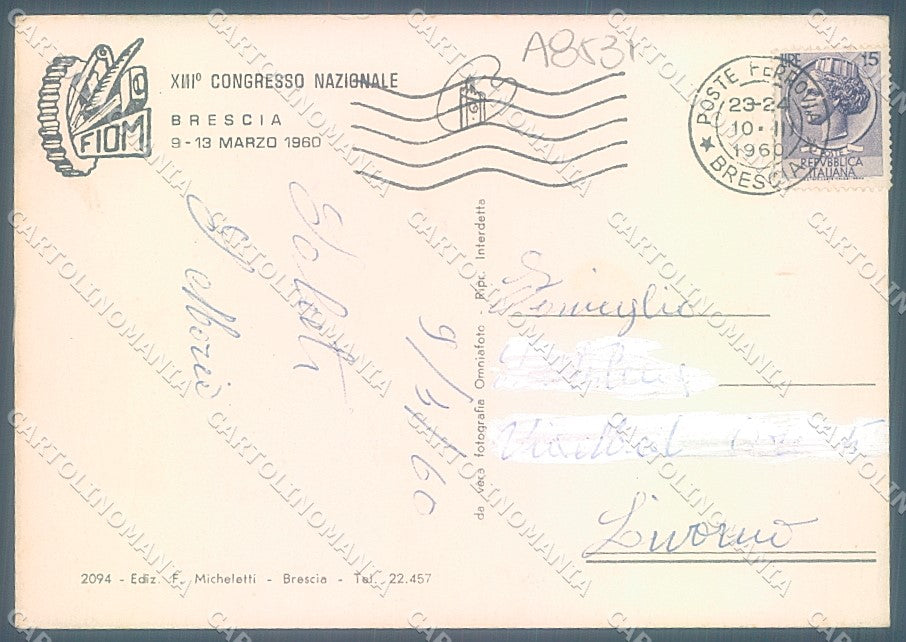 A8531
FIOM
XIII° CONGRESSO NAZIONALE
BRESCIA
9-13 MARZO 1960
POSTE FERROVIA
23-24
10·III
1960
★ BRESCIA ★
LIRE 15
REPVBBLICA
ITALIANA
Saluti
9/3/60
da vera fotografia Omniafoto - Ripr. Interdetta
Famiglia
Livorno
2094 - Ediz. F. Micheletti - Brescia - Tel. 22.457
CARTOLINOMANIA